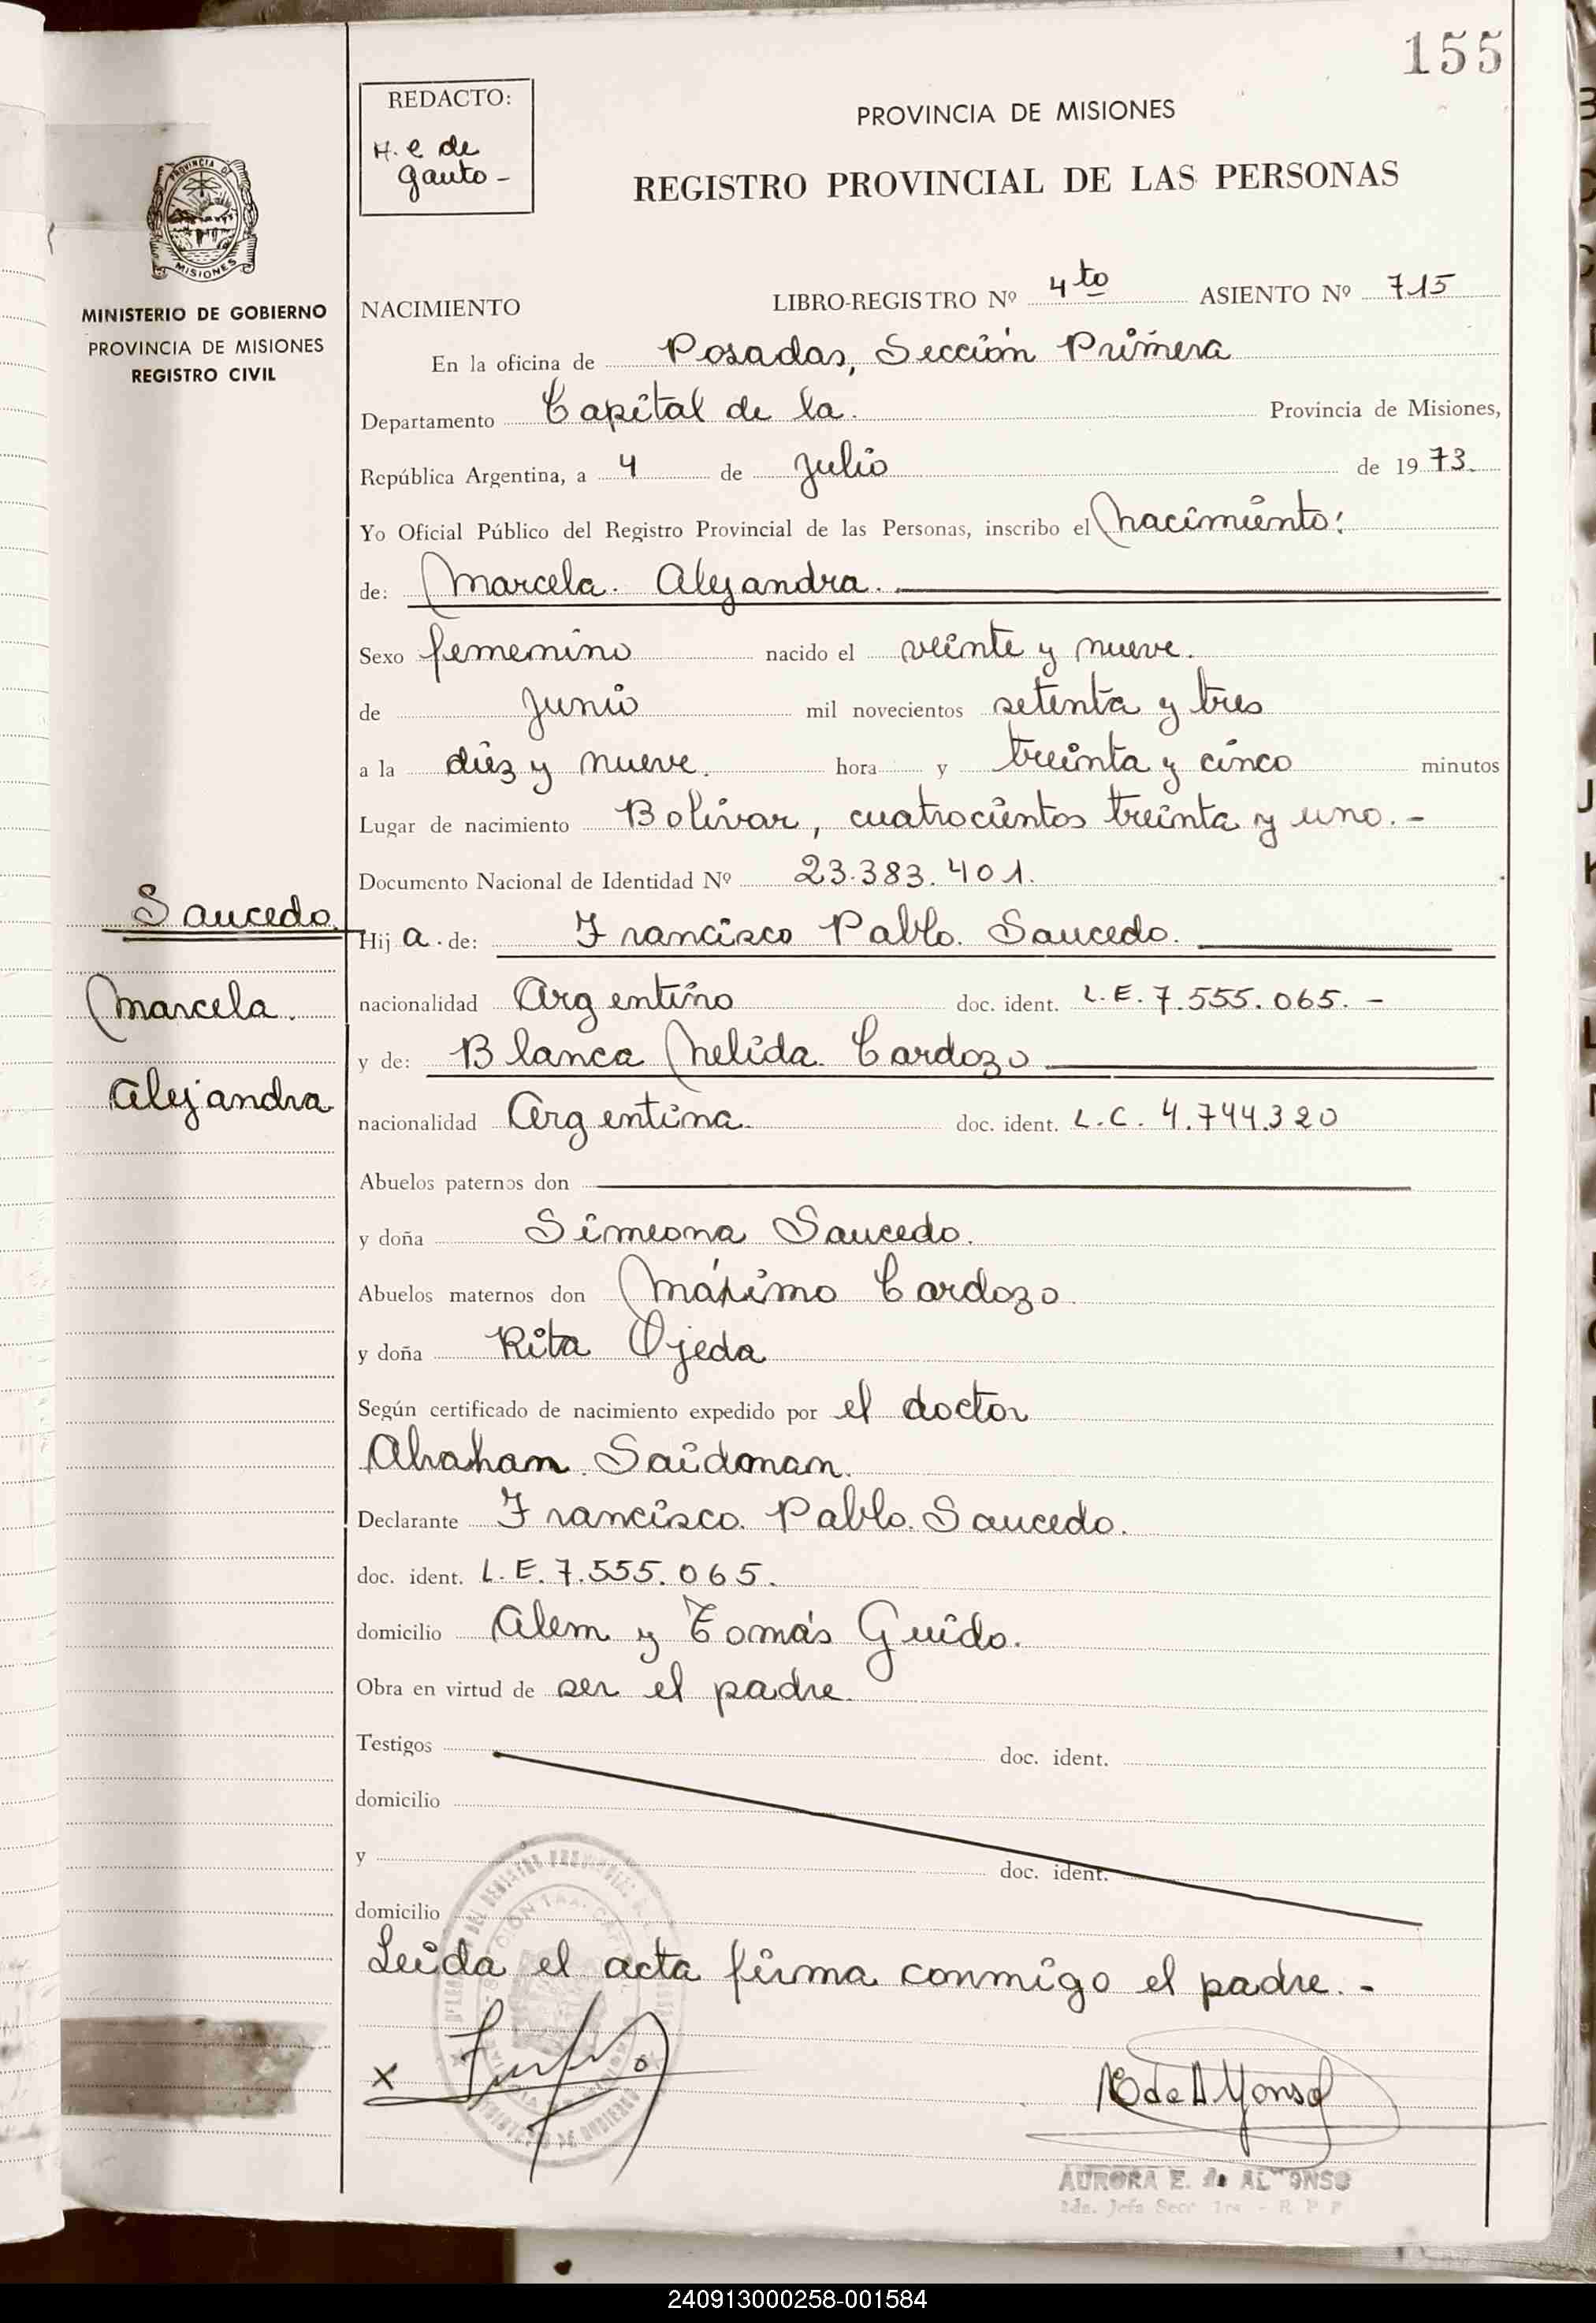 155
REDACTO:
H. e de
Gauto -
PROVINCIA DE MISIONES
REGISTRO PROVINCIAL DE LAS PERSONAS
PROVINCIA DE
MISIONES
MINISTERIO DE GOBIERNO
PROVINCIA DE MISIONES
REGISTRO CIVIL
NACIMIENTO LIBRO-REGISTRO Nº 4to ASIENTO Nº 715
En la oficina de Posadas, Sección Primera
Departamento Capital de la. Provincia de Misiones,
República Argentina, a 4 de Julio de 1973.
Yo Oficial Público del Registro Provincial de las Personas, inscribo el Nacimiento:
de: Marcela. Alejandra.
Sexo femenino nacido el veinte y nueve.
de Junio mil novecientos setenta y tres
a la diez y nueve. hora y treinta y cinco minutos
Lugar de nacimiento Bolivar, cuatrocientos treinta y uno. -
Documento Nacional de Identidad Nº 23.383.401.
Saucedo.
Marcela.
Alejandra
Hij a. de: Francisco Pablo. Saucedo.
nacionalidad Argentino doc. ident. L.E. 7.555.065. -
y de: Blanca Nelida. Cardozo
nacionalidad Argentina. doc. ident. L.C. 4.744.320
Abuelos paternos don
y doña Simeona Saucedo.
Abuelos maternos don Máximo Cardozo
y doña Rita Ojeda
Según certificado de nacimiento expedido por el doctor
Abraham Saidman.
Declarante Francisco. Pablo. Saucedo.
doc. ident. L.E. 7.555.065.
domicilio Alem y Tomás Guido.
Obra en virtud de ser el padre.
Testigos doc. ident.
domicilio
y doc. ident.
domicilio
Leida el acta firma conmigo el padre. -
x
E de Alfonso
AURORA E. de ALFONSO
2da. Jefa Secc 1ra - R P P
240913000258-001584